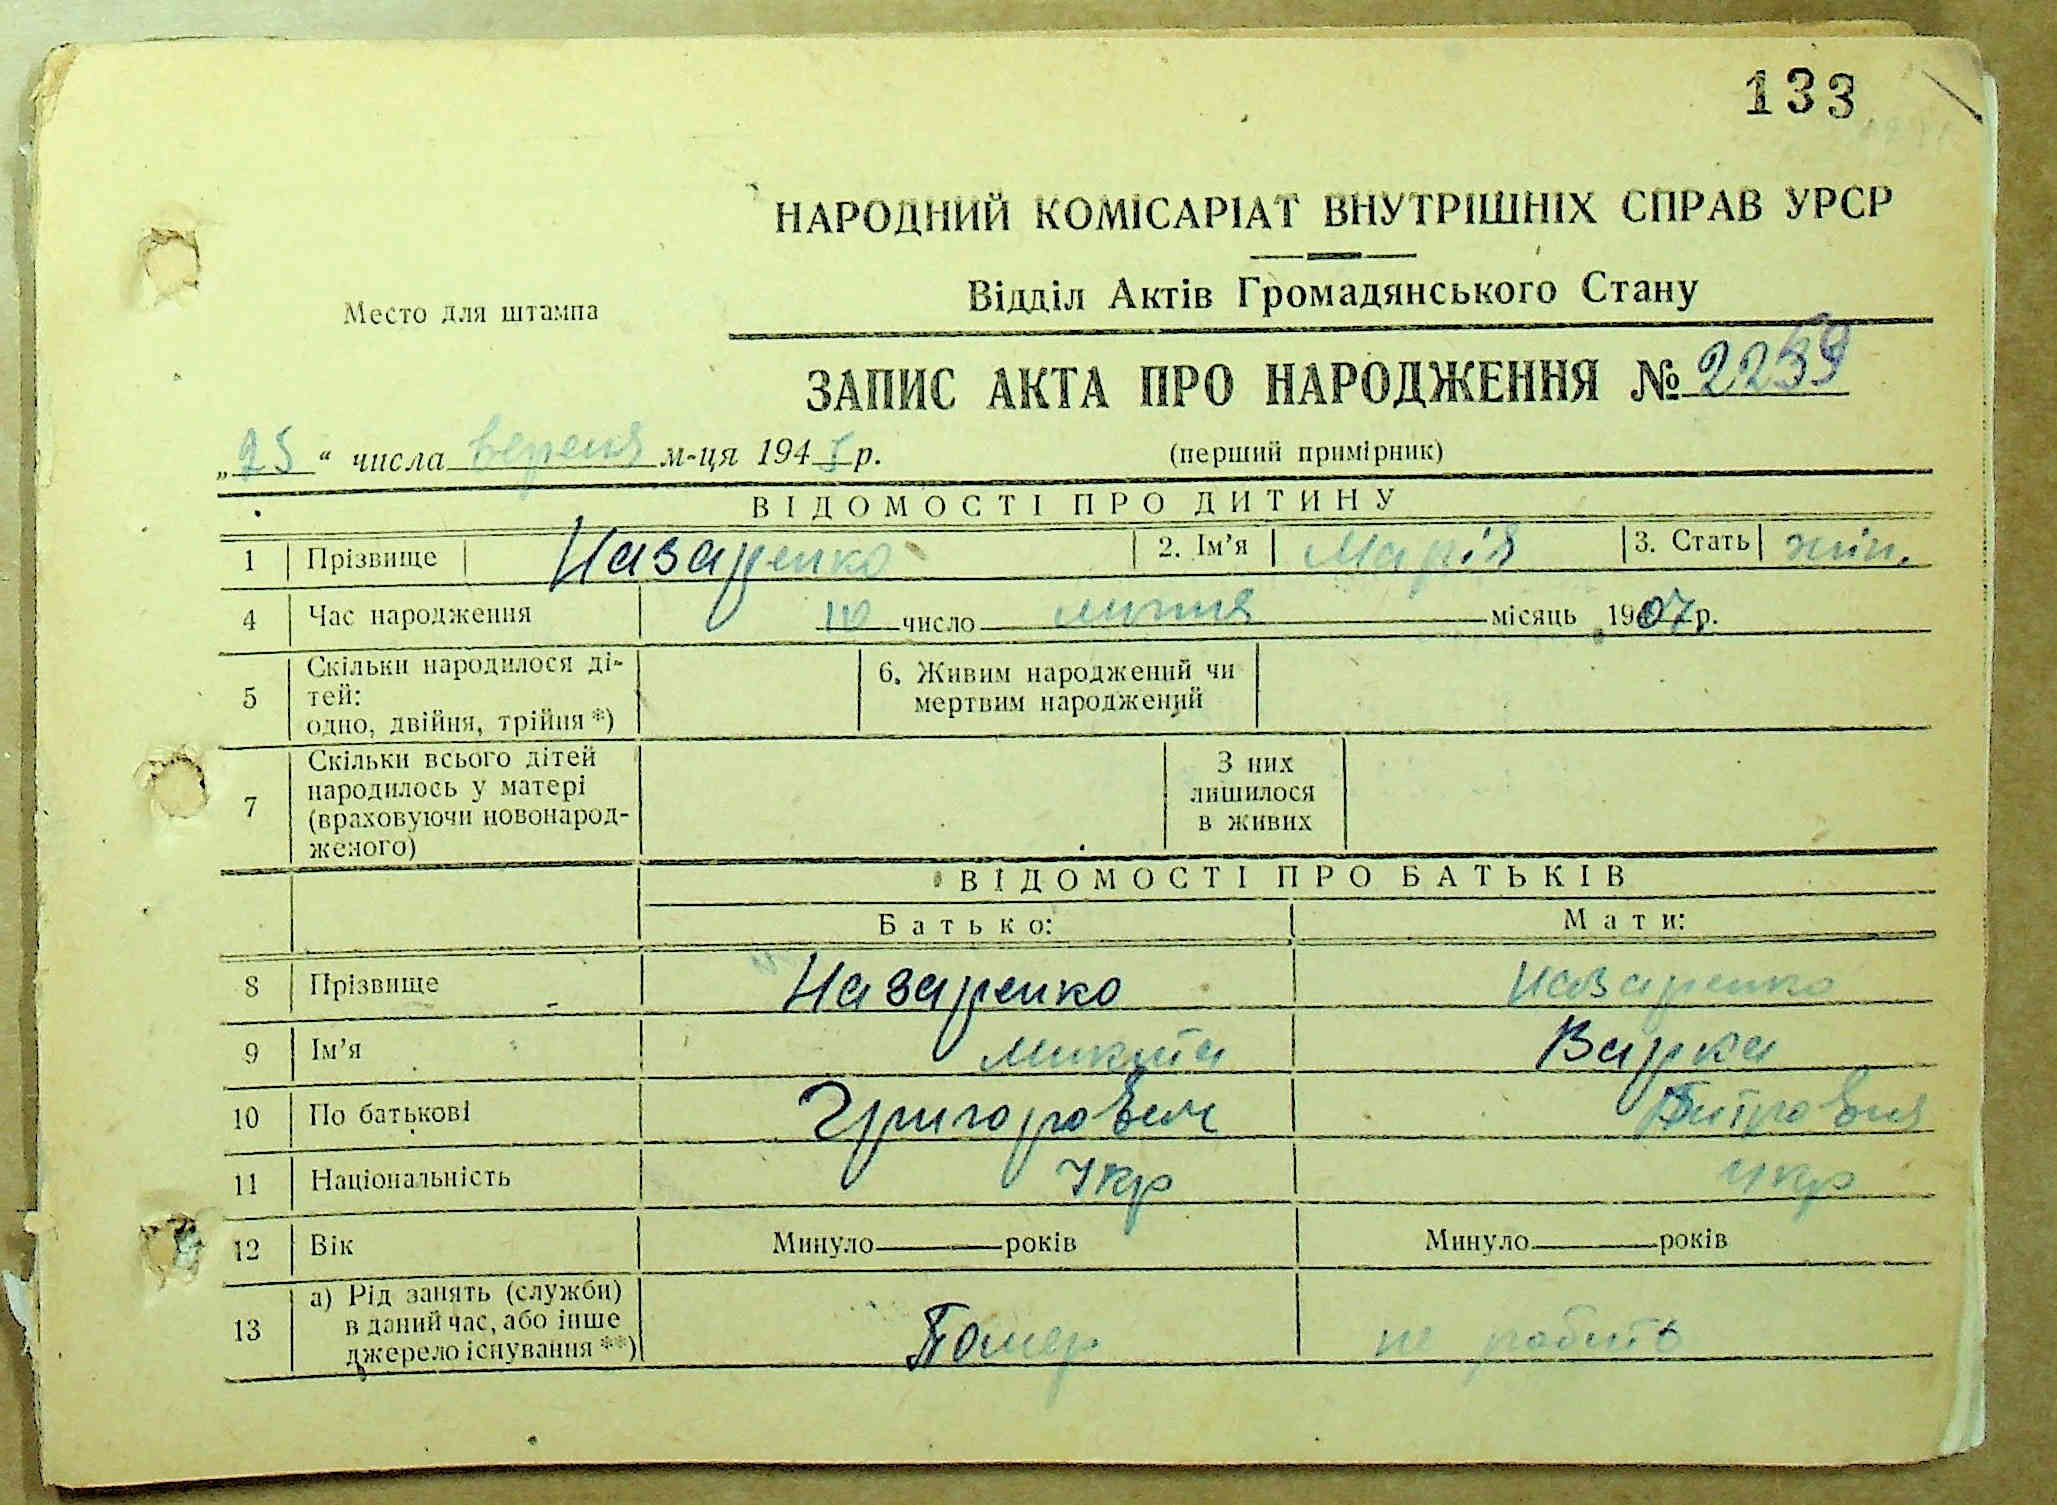 133
НАРОДНИЙ КОМІСАРІАТ ВНУТРІШНІХ СПРАВ УРСР
Место для штампа
Відділ Актів Громадянського Стану
ЗАПИС АКТА ПРО НАРОДЖЕННЯ № 2259
„25“ числа вересня м-ця 1945 р.
(перший примірник)
ВІДОМОСТІ ПРО ДИТИНУ
1 Прізвище Назаренко 2. Ім'я Марія 3. Стать жін.
4 Час народження 10 число липня місяць 1907 р.
5 Скільки народилося ді-
тей:
одно, двійня, трійня *)
6. Живим народжений чи
мертвим народжений
7 Скільки всього дітей
народилось у матері
(враховуючи новонарод-
женого)
З них
лишилося
в живих
ВІДОМОСТІ ПРО БАТЬКІВ
Батько: Мати:
8 Прізвище Назаренко Назаренко
9 Ім'я Микита Варка
10 По батькові Григорович
11 Національність Укр Укр
12 Вік Минуло років Минуло років
13 а) Рід занять (служби)
в даний час, або інше
джерело існування **)
Помер не робить